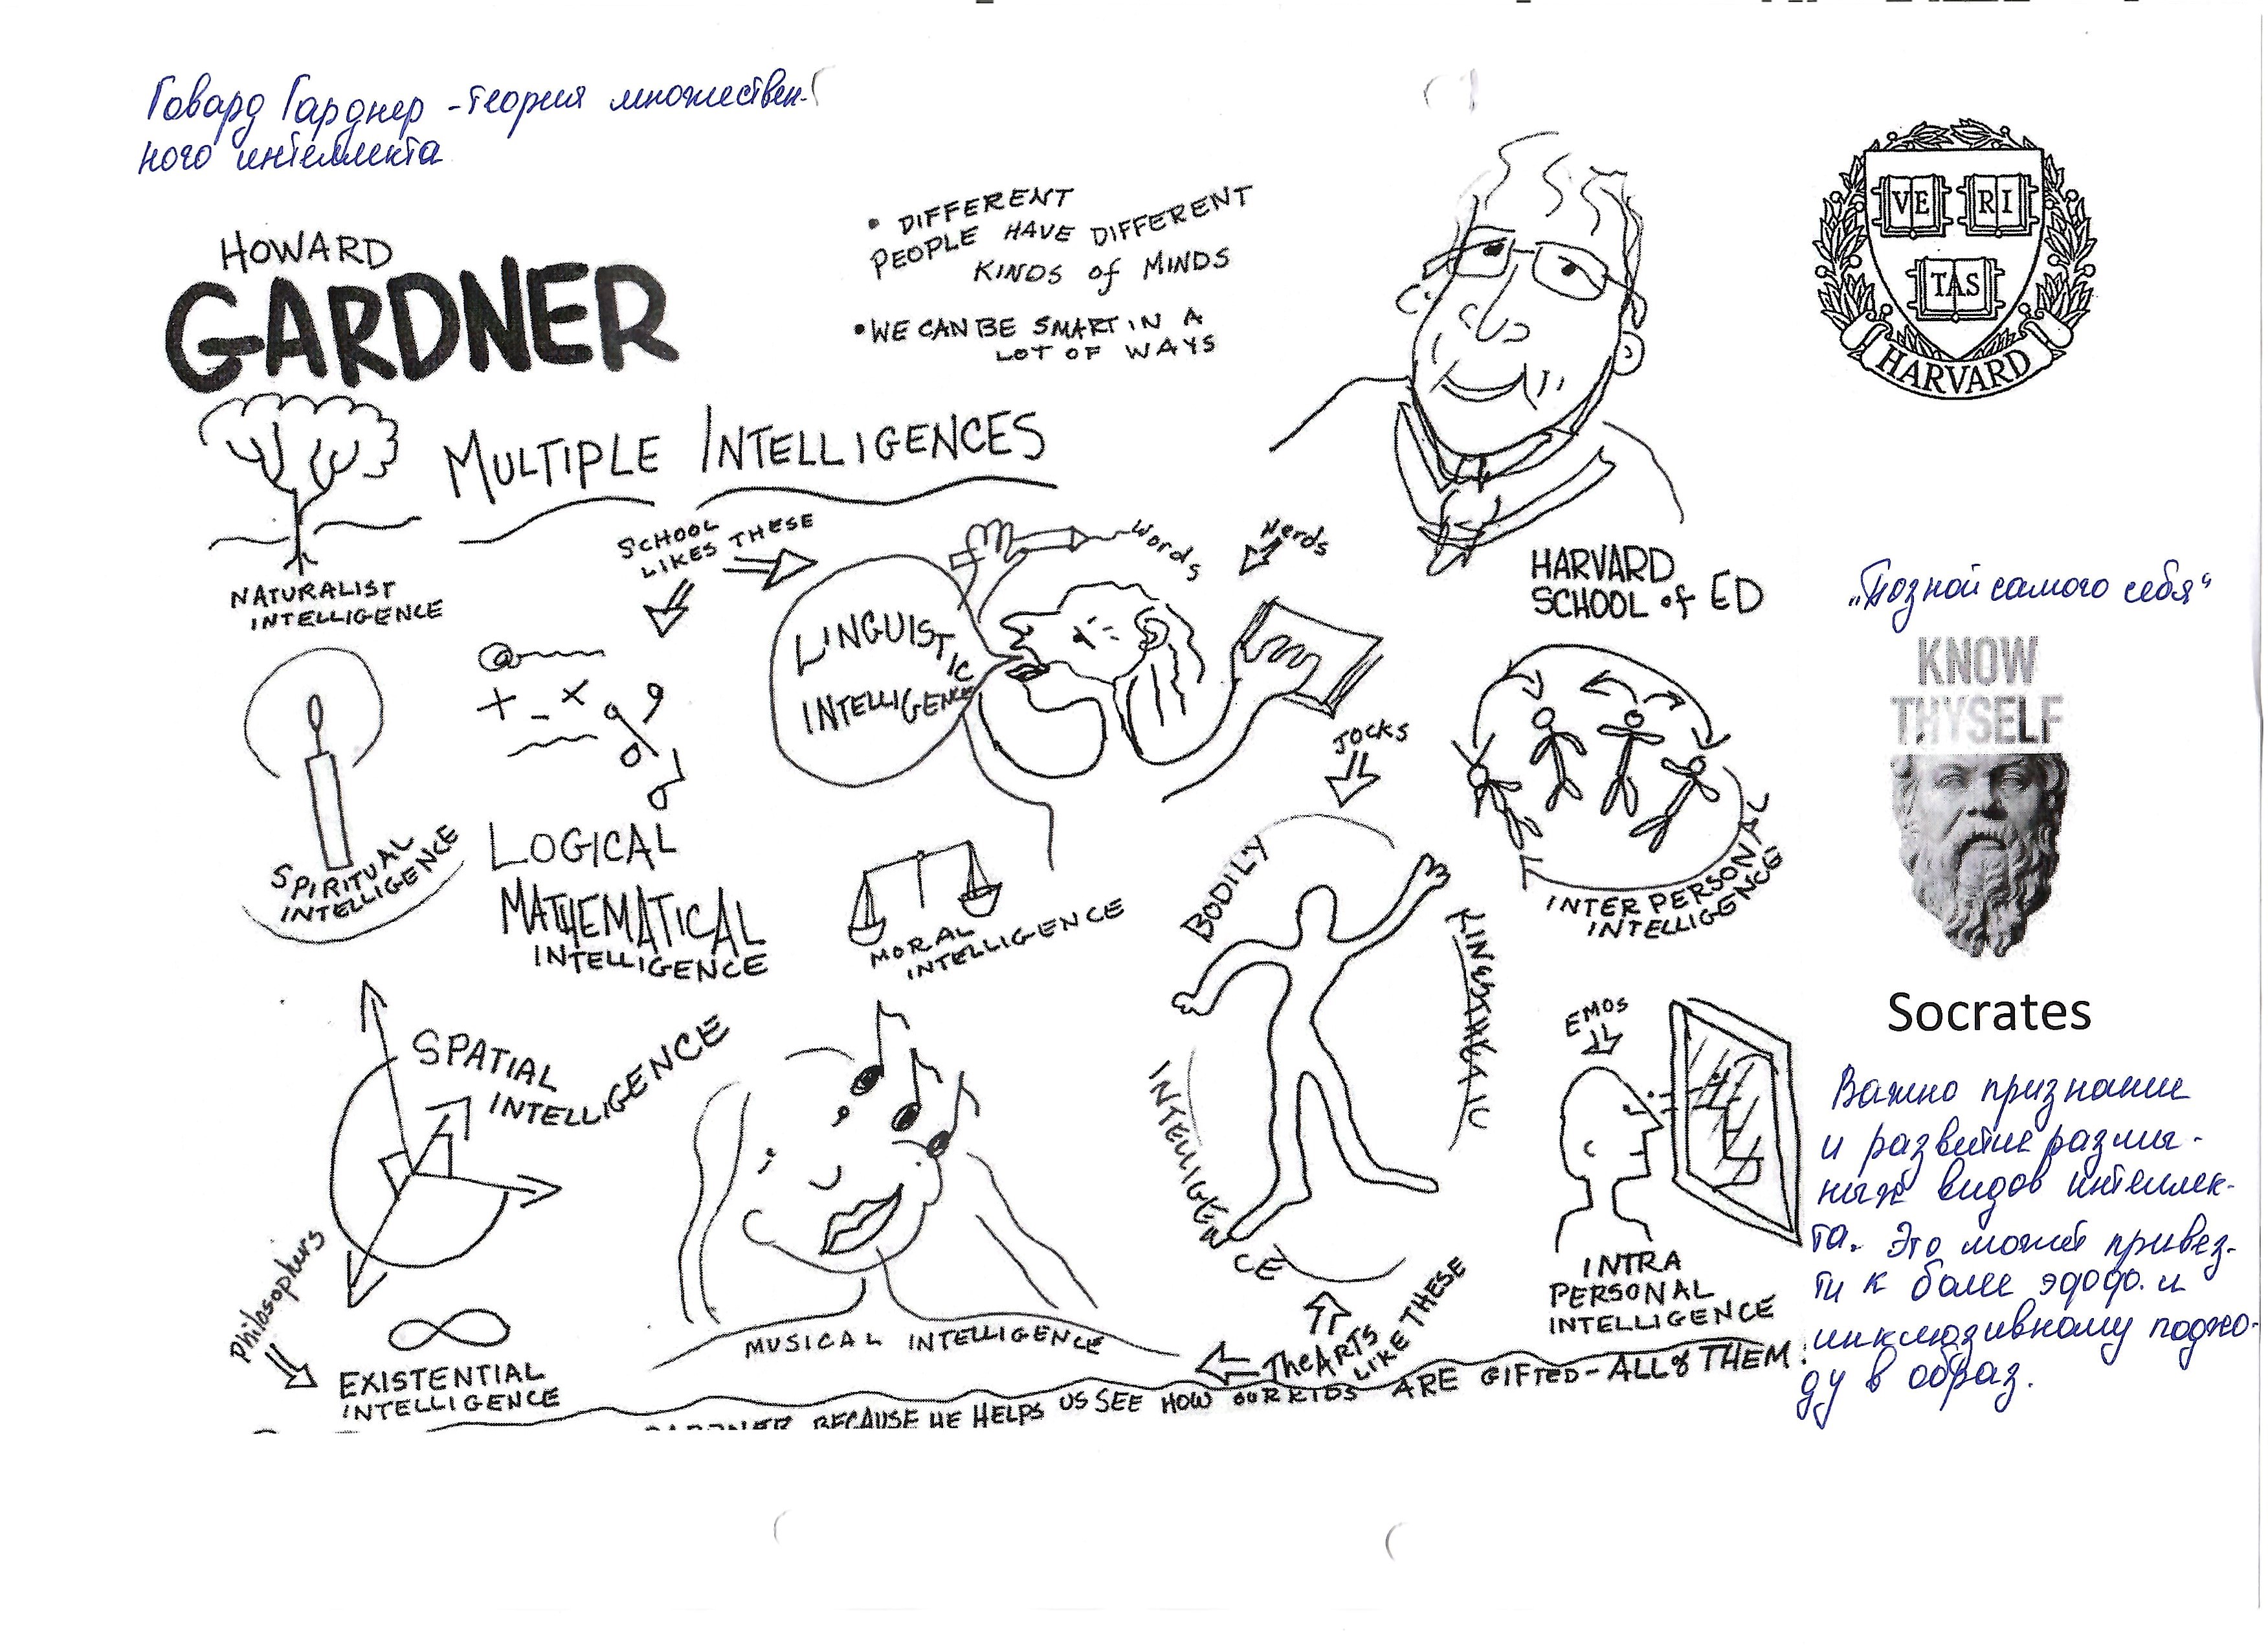 Говард Гарднер - теория множествен-
ного интеллекта
HOWARD
GARDNER
• DIFFERENT
PEOPLE HAVE DIFFERENT
KINDS of MINDS
• WE CAN BE SMART IN A
LOT OF WAYS
VE RI
TAS
HARVARD
MULTIPLE INTELLIGENCES
NATURALIST
INTELLIGENCE
SCHOOL
LIKES THESE
Words
Nerds
LINGUISTIC
INTELLIGENCE
HARVARD
SCHOOL of ED
„Познай самого себя“
KNOW
THYSELF
Socrates
SPIRITUAL
INTELLIGENCE
+ - x
LOGICAL
MATHEMATICAL
INTELLIGENCE
MORAL
INTELLIGENCE
JOCKS
BODILY
KINESTHETIC
INTELLIGENCE
INTERPERSONAL
INTELLIGENCE
SPATIAL
INTELLIGENCE
EMOS
INTRA
PERSONAL
INTELLIGENCE
Philosophers
EXISTENTIAL
INTELLIGENCE
MUSICAL INTELLIGENCE
The ARTS
LIKE THESE
GARDNER BECAUSE HE HELPS US SEE HOW OUR KIDS ARE GIFTED - ALL of THEM!
Важно признание
и развитие различ-
ных видов интеллек-
та. Это может привез-
ти к более эфф. и
инклюзивному подхо-
ду в образ.